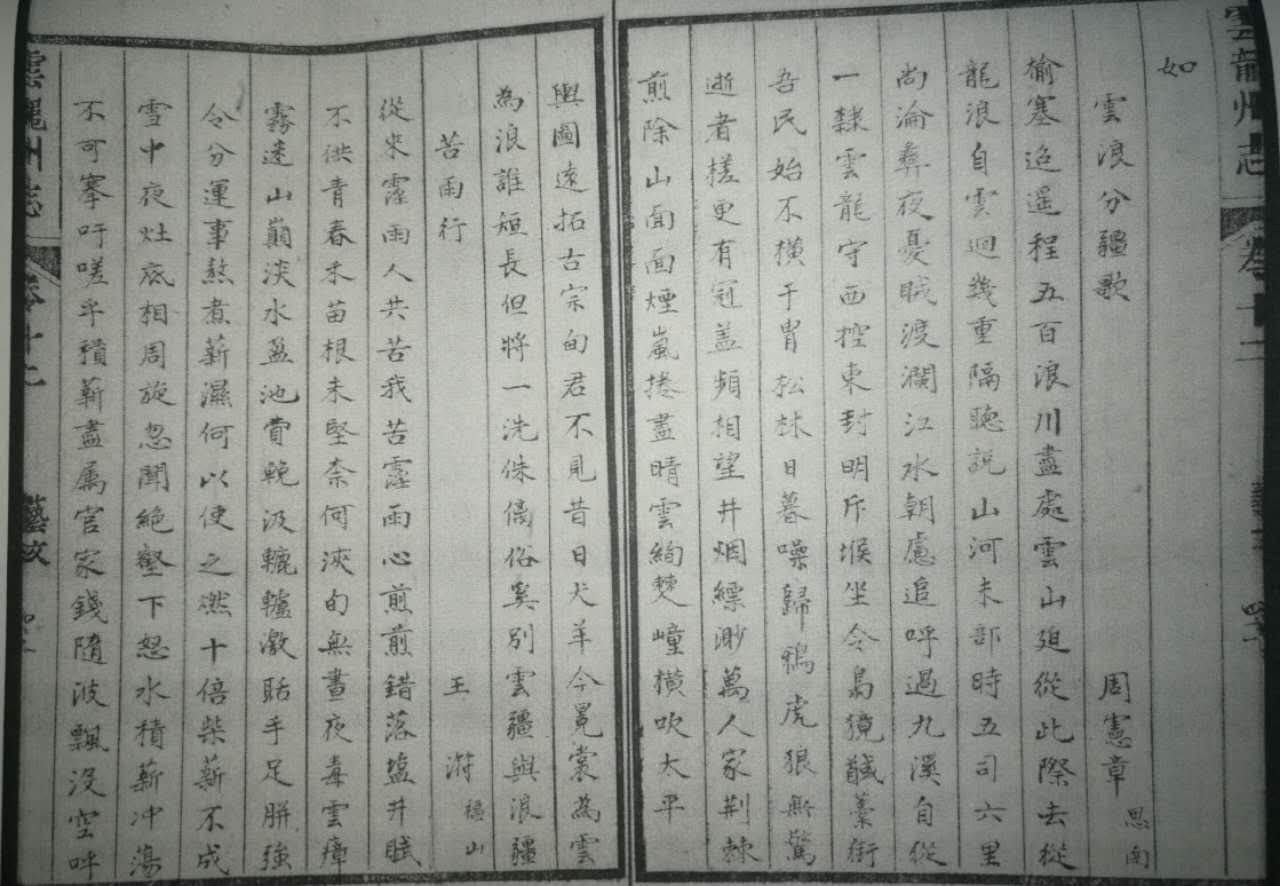 雲龍州志
卷十二
如
雲浪分疆歌 周憲章 思南
榆塞迢遥程五百浪川盡處雲山廻從此際去從
龍浪自雲迴幾重隔聽説山河未部時五司六里
尚淪彝夜憂賊渡瀾江水朝慮追呼過九溪自從
一隸雲龍守西控東封明斥堠坐令梟獍馘藁街
吾民始不橫干胄松林日暮噪歸鴉虎狼無驚
逝者搓更有冠盖頻相望井烟縹渺萬人家荆棘
煎除山面面煙嵐捲盡晴雲絢僰㠉橫吹太平
輿圖遠拓古宗甸君不見昔日犬羊今冕裳為雲
為浪誰短長但將一洗侏𠌯俗奚别雲疆與浪疆
苦雨行 王㳺 穩山
從來霪雨人共苦我苦霪雨心煎煎錯落塩井賦
不供青春禾苗根未堅奈何浹旬無晝夜毒雲瘴
霧迷山巔淡水盈池費輓汲轆轤激聒手足胼強
令分運事熬煮薪濕何以使之燃十倍柴薪不成
雪中夜灶底相周旋忽聞絶壑下怒水積薪冲蕩
不可搴吁嗟乎積薪盡属官家錢隨波飄没空呼
雲龍州志
卷十二
藝文